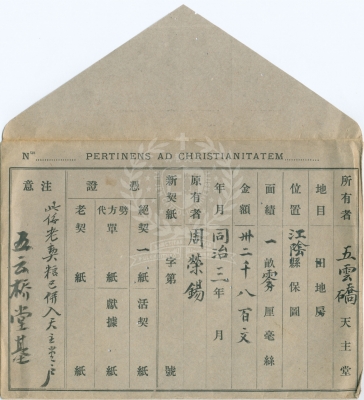 Nᵒˢ PERTINENS AD CHRISTIANITATEM
所有者 五雲礄 天主堂
地目 田地房
位置 江陰縣保圖
面積 一畝 零 厘毫絲
金額 卅二千八百文
年月 同治三年 月
原有者 周榮錫
新契紙 字第 號
憑證
絕契 一 紙 活契 紙
勞代方單 紙 獻據 紙
老契 紙
注意
此係老契糧已併入天主堂戶
五云桥堂基